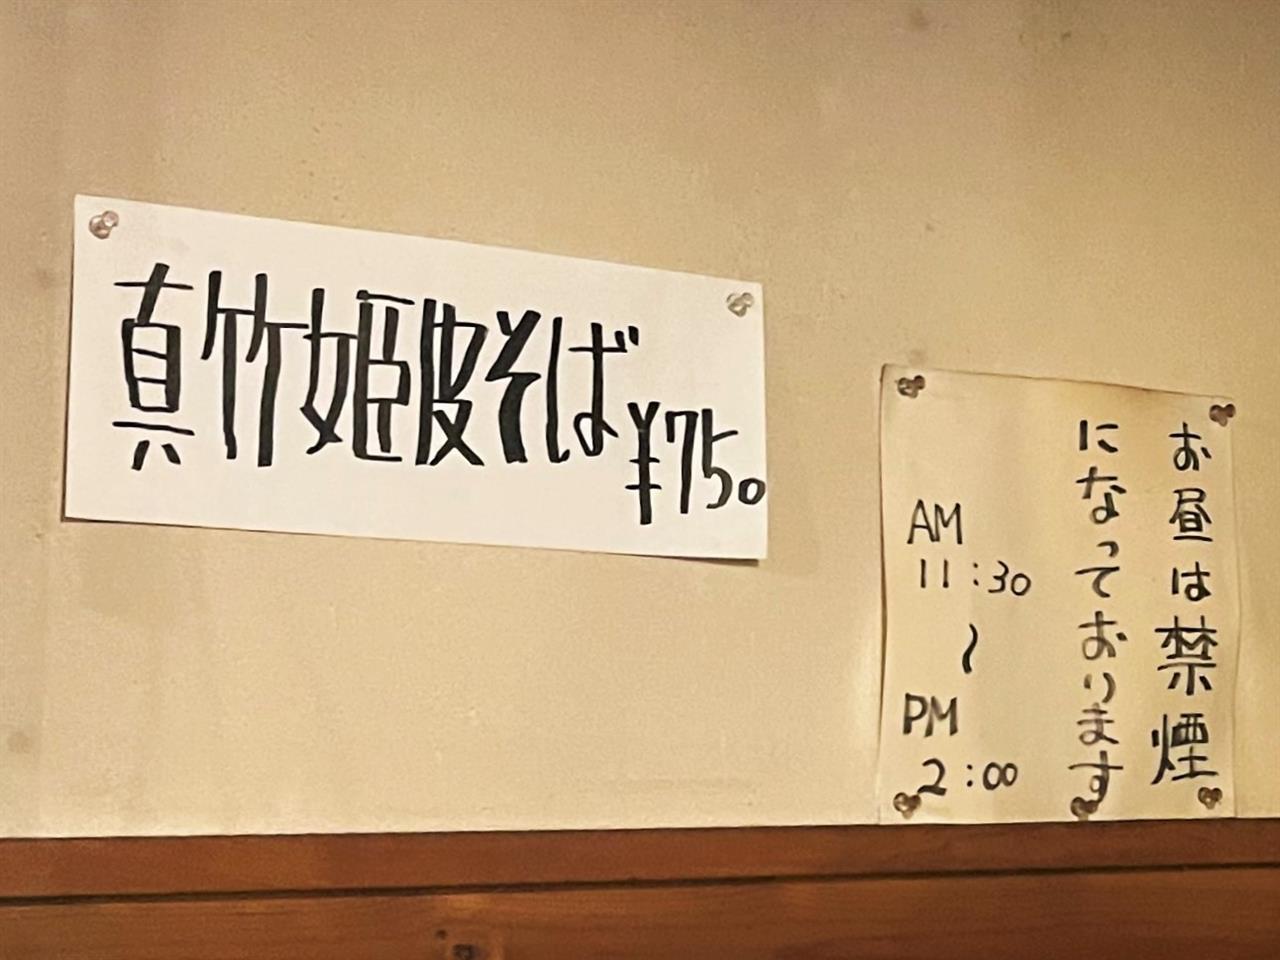 真竹姫皮そば
¥750
お昼は禁煙
になっております
AM
11:30
〜
PM
2:00